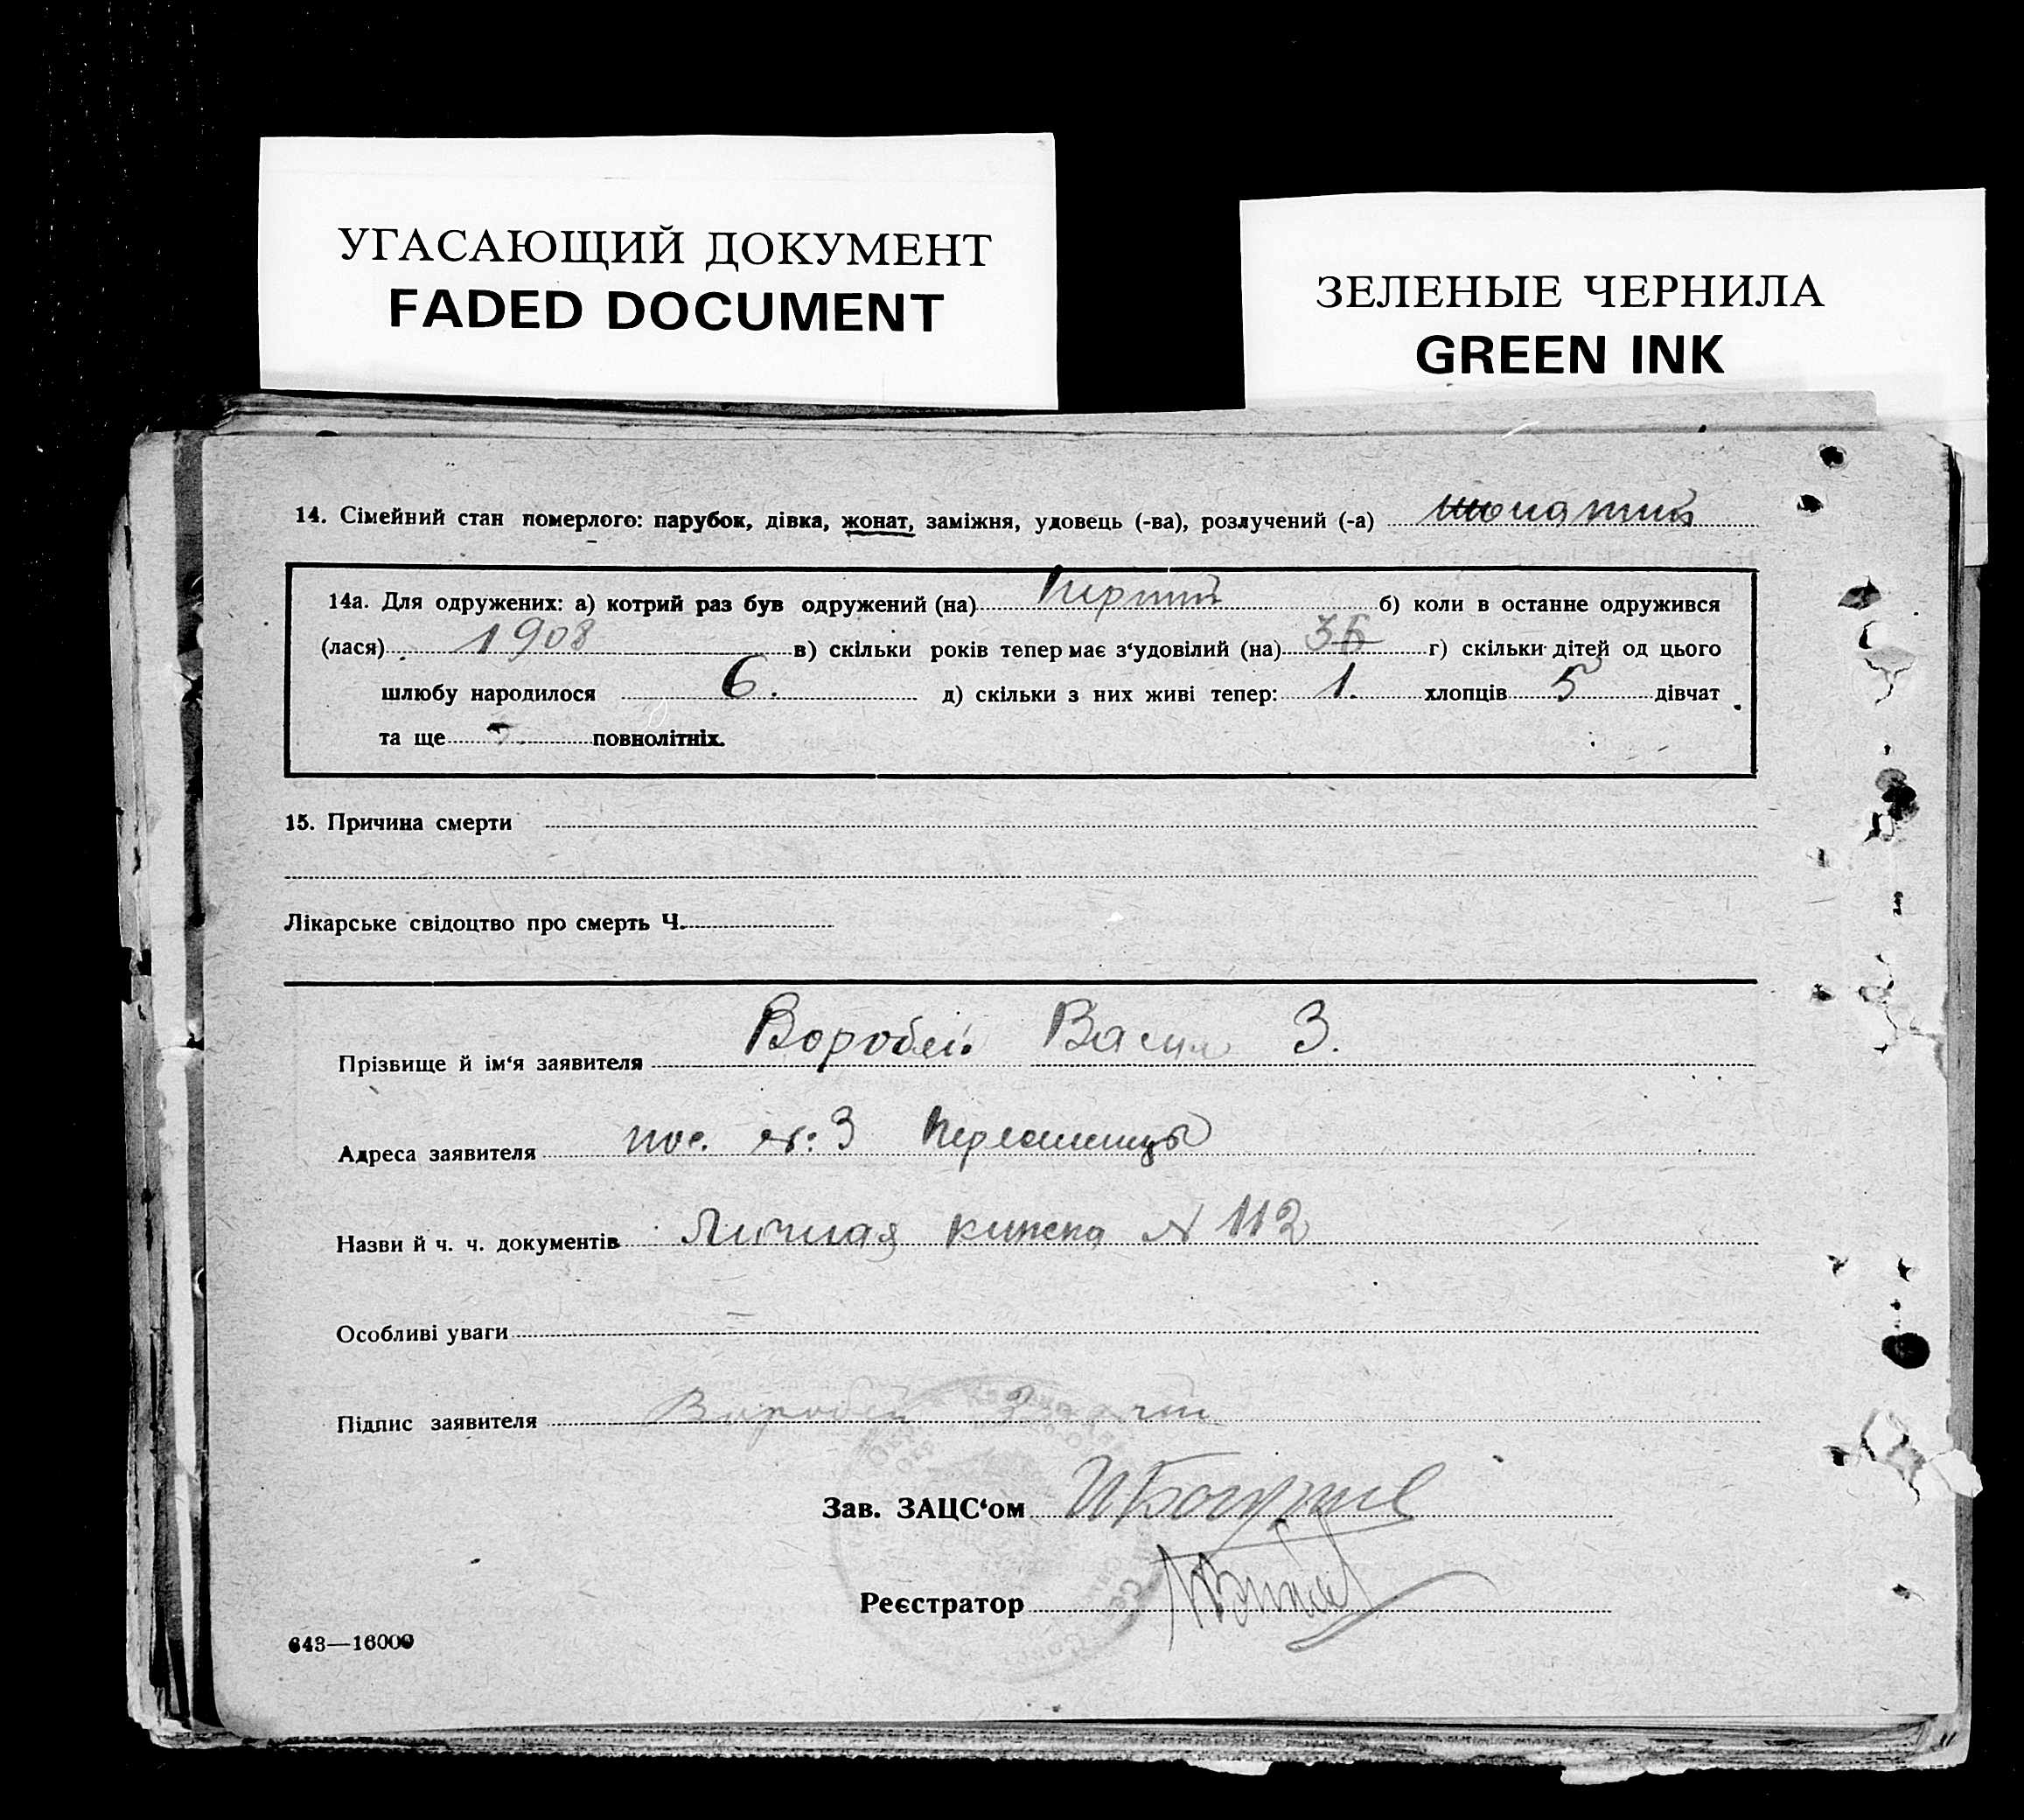 УГАСАЮЩИЙ ДОКУМЕНТ
FADED DOCUMENT
ЗЕЛЕНЫЕ ЧЕРНИЛА
GREEN INK
14. Сімейний стан померлого: парубок, дівка, жонат, заміжня, удовець (-ва), розлучений (-а) жонатий
14а. Для одружених: а) котрий раз був одружений (на) Перший б) коли в останне одружився
(лася) 1908 в) скільки років тепер має з‘удовілий (на) г) скільки дітей од цього
шлюбу народилося 6. д) скільки з них живі тепер: 1. хлопців 5 дівчат
та ще повнолітніх.
15. Причина смерти
Лікарське свідоцтво про смерть Ч.
Прізвище й ім‘я заявителя Воробей Васил З.
Адреса заявителя пос. №: 3
Назви й ч. ч. документів Личная книжка № 112
Особливі уваги
Підпис заявителя Воробей
Зав. ЗАЦС‘ом
Реєстратор
643—16000